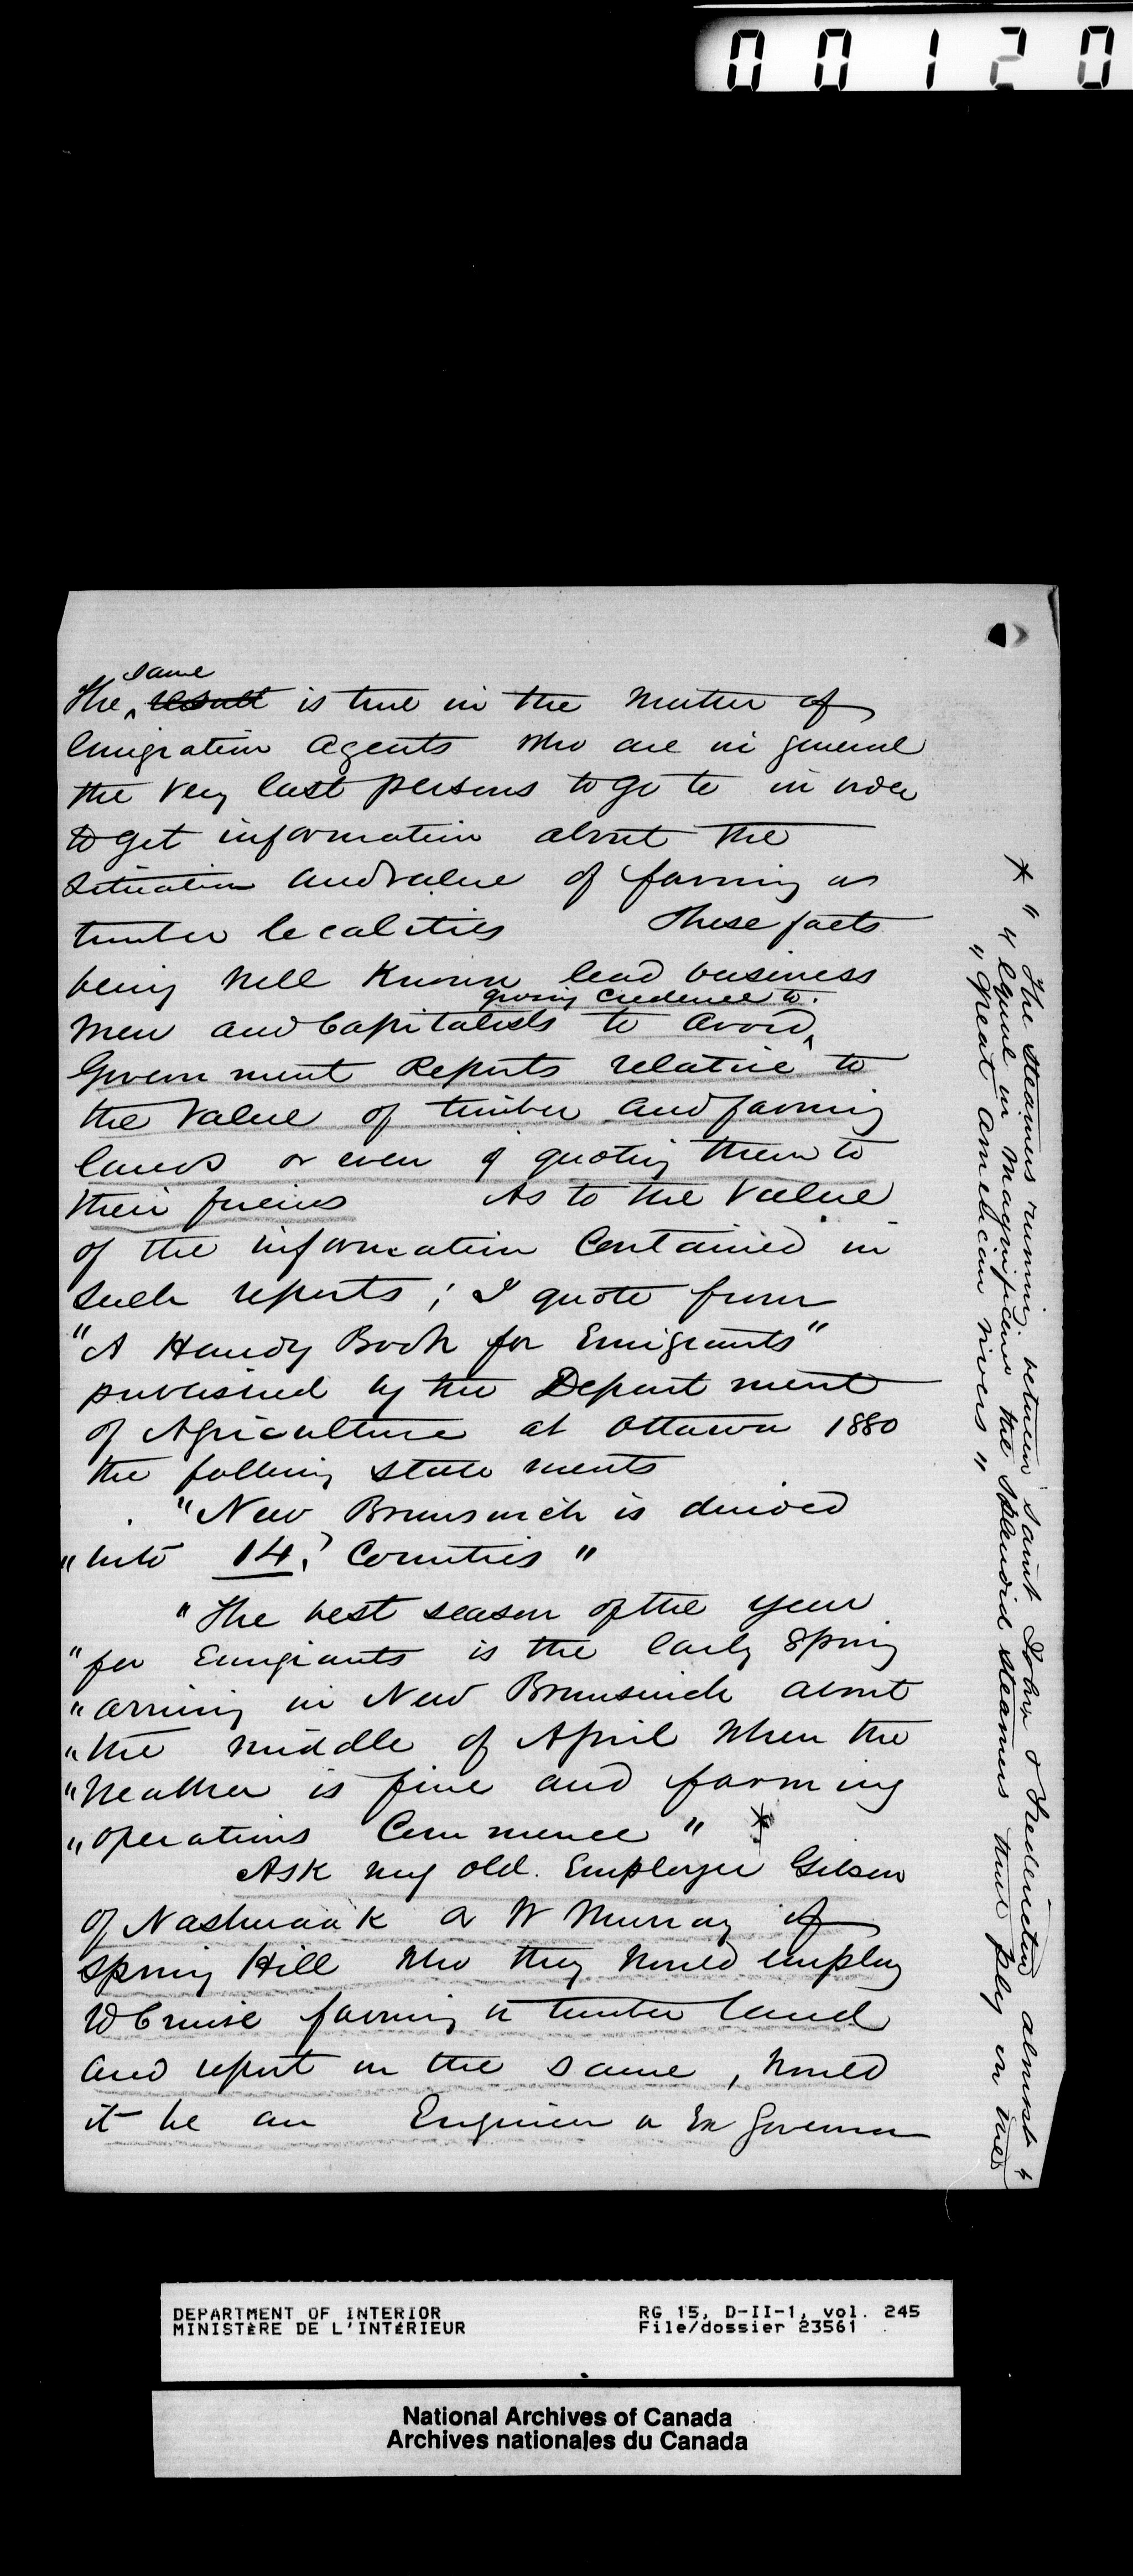 00120
same
The ^ result is true in the matter of
Emigration Agents who are in general
the very last persons to go to in order
to get information about the
situation and value of farming or
timber localities These facts
being well known lead business
giving credence to
men and Capitalists to avoid ^
Government Reports relative to
the value of timber and farming
lands or even of quoting them to
their friends As to the value
of the information Contained in
such reports ; I quote from
"A Handy Book for Emigrants"
published by the Department
of Agriculture at Ottawa 1880
the following statements
"New Brunswick is divided
"into 14? Counties "
"The best season of the year
"for Emigrants is the Early Spring
"arriving in New Brunswick about
"the middle of April when the
"weather is fine and farming
"operations Commence " *
Ask my old Employer Gibson
of Nashwaak or W Murray of
Spring Hill who they would employ
to Cruise farming or timber land
and report on the same , would
it be an Engineer or Ex Governor
* " The steamers running between Saint John & Fredericton almost "
" Equal in magnificence the splendid steamers that ply on the
" great American rivers "
DEPARTMENT OF INTERIOR
MINISTÈRE DE L'INTÉRIEUR
RG 15, D-II-1, vol. 245
File/dossier 23561
National Archives of Canada
Archives nationales du Canada